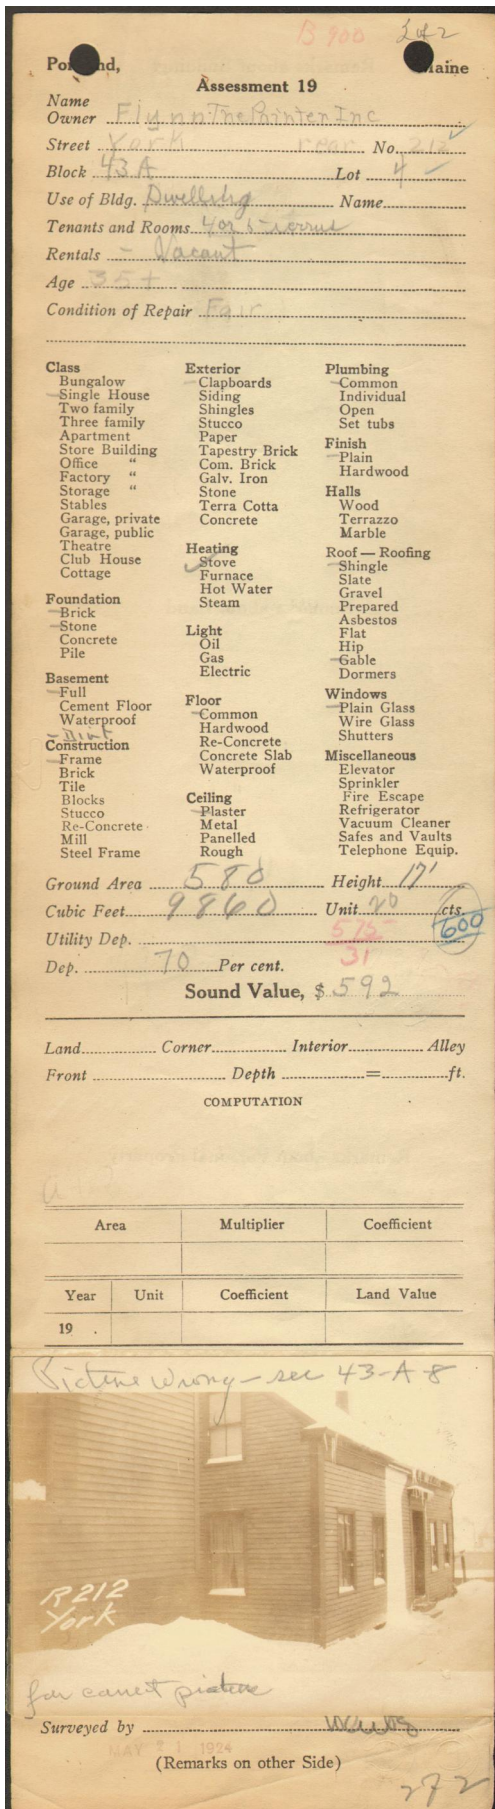 B 900 2 of 2
Portland, Maine
Assessment 19
Name
Owner Flynn The Printer Inc
Street York rear No. 212
Block 43 A Lot 4
Use of Bldg. Dwelling Name
Tenants and Rooms 4 or 5 rooms
Rentals - Vacant
Age 35+
Condition of Repair Fair
Class
Bungalow
Single House
Two family
Three family
Apartment
Store Building
Office "
Factory "
Storage "
Stables
Garage, private
Garage, public
Theatre
Club House
Cottage
Foundation
Brick
Stone
Concrete
Pile
Basement
Full
Cement Floor
Waterproof
- Dirt
Construction
Frame
Brick
Tile
Blocks
Stucco
Re-Concrete
Mill
Steel Frame
Exterior
Clapboards
Siding
Shingles
Stucco
Paper
Tapestry Brick
Com. Brick
Galv. Iron
Stone
Terra Cotta
Concrete
Heating
Stove
Furnace
Hot Water
Steam
Light
Oil
Gas
Electric
Floor
Common
Hardwood
Re-Concrete
Concrete Slab
Waterproof
Ceiling
Plaster
Metal
Panelled
Rough
Plumbing
Common
Individual
Open
Set tubs
Finish
Plain
Hardwood
Halls
Wood
Terrazzo
Marble
Roof — Roofing
Shingle
Slate
Gravel
Prepared
Asbestos
Flat
Hip
Gable
Dormers
Windows
Plain Glass
Wire Glass
Shutters
Miscellaneous
Elevator
Sprinkler
Fire Escape
Refrigerator
Vacuum Cleaner
Safes and Vaults
Telephone Equip.
Ground Area 580 Height 17'
Cubic Feet 9860 Unit 20 cts.
Utility Dep. 575 600
31
Dep. 70 Per cent.
Sound Value, $ 592
Land Corner Interior Alley
Front Depth = ft.
COMPUTATION
Area Multiplier Coefficient
Year Unit Coefficient Land Value
19 .
Picture Wrong - see 43-A-8
R 212
York
for correct picture
Surveyed by
MAY 21 1924
(Remarks on other Side)
272